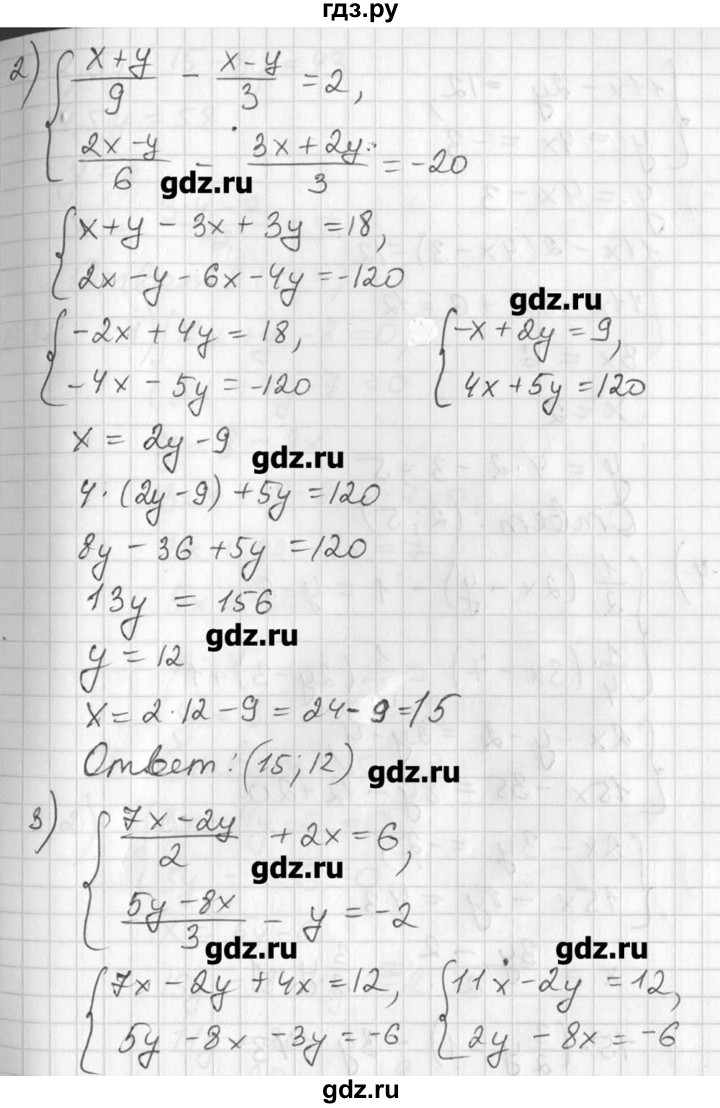 гдз.ру
2) { (x+y)/9 - (x-y)/3 = 2,
(2x-y)/6 - (3x+2y)/3 = -20
gdz.ru
{ x+y - 3x + 3y = 18,
2x - y - 6x - 4y = -120
gdz.ru
{ -2x + 4y = 18, { -x + 2y = 9,
-4x - 5y = -120 4x + 5y = 120
x = 2y - 9
gdz.ru
4·(2y-9) + 5y = 120
8y - 36 + 5y = 120
13y = 156
gdz.ru
y = 12
x = 2·12 - 9 = 24 - 9 = 15
Ответ: (15; 12)
gdz.ru
3) { (7x-2y)/2 + 2x = 6,
gdz.ru
(5y-8x)/3 - y = -2
gdz.ru gdz.ru
{ 7x - 2y + 4x = 12, { 11x - 2y = 12,
5y - 8x - 3y = -6 2y - 8x = -6
gdz.ru